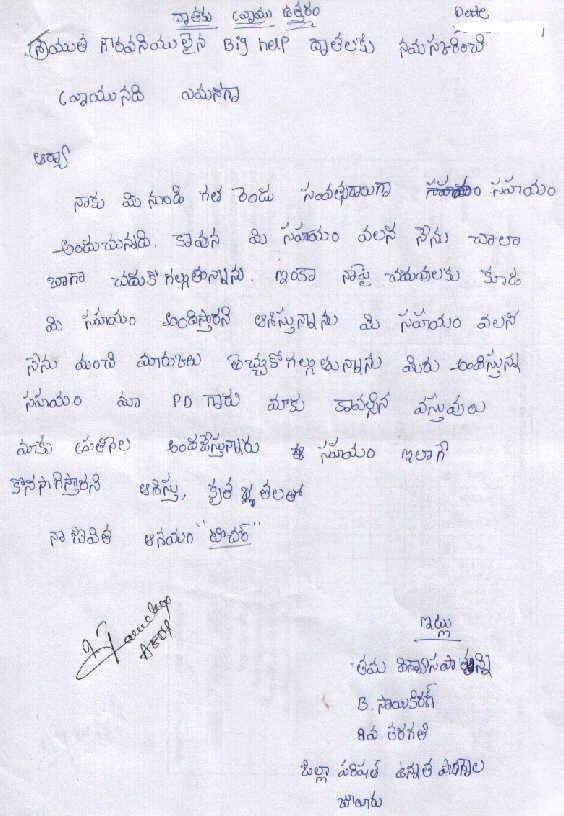 దాతకు వ్రాయు ఉత్తరం
Date
శ్రీయుత గౌరవనియులైన Big help దాతలకు నమస్కరించి
వ్రాయునది ఏమనగా
ఆర్యా
నాకు మి నుండి గత రెండు సంవత్సరాలుగా సహయం సహయం
అందుచున్నది. కావున మి సహయం వలన నేను చాలా
బాగా చదుకో గల్గుతున్నాను. ఇంకా నాపై చదువులకు కూడ
మి సహయం అందిస్తారని ఆశిస్తున్నాను మి సహయం వలన
నేను మంచి మారుకులు తెచ్చుకో గల్గుతున్నాను మిరు అందిస్తున్న
సహయం మా PD గారు మాకు కావల్సిన వస్తువులు
మాకు ప్రతినెల అందజేస్తున్నారు ఈ సహయం ఇలాగే
కొనసాగిస్తారని ఆశిస్తు, కృతజ్ఞతలతో
నా జీవిత ఆశయం "టీచర్"
ఇట్లు
తమ విశ్వాసపాత్రున్ని
B. సాయికిరణ్
9వ తరగతి
జిల్లా పరిషత్ ఉన్నత పాఠశాల